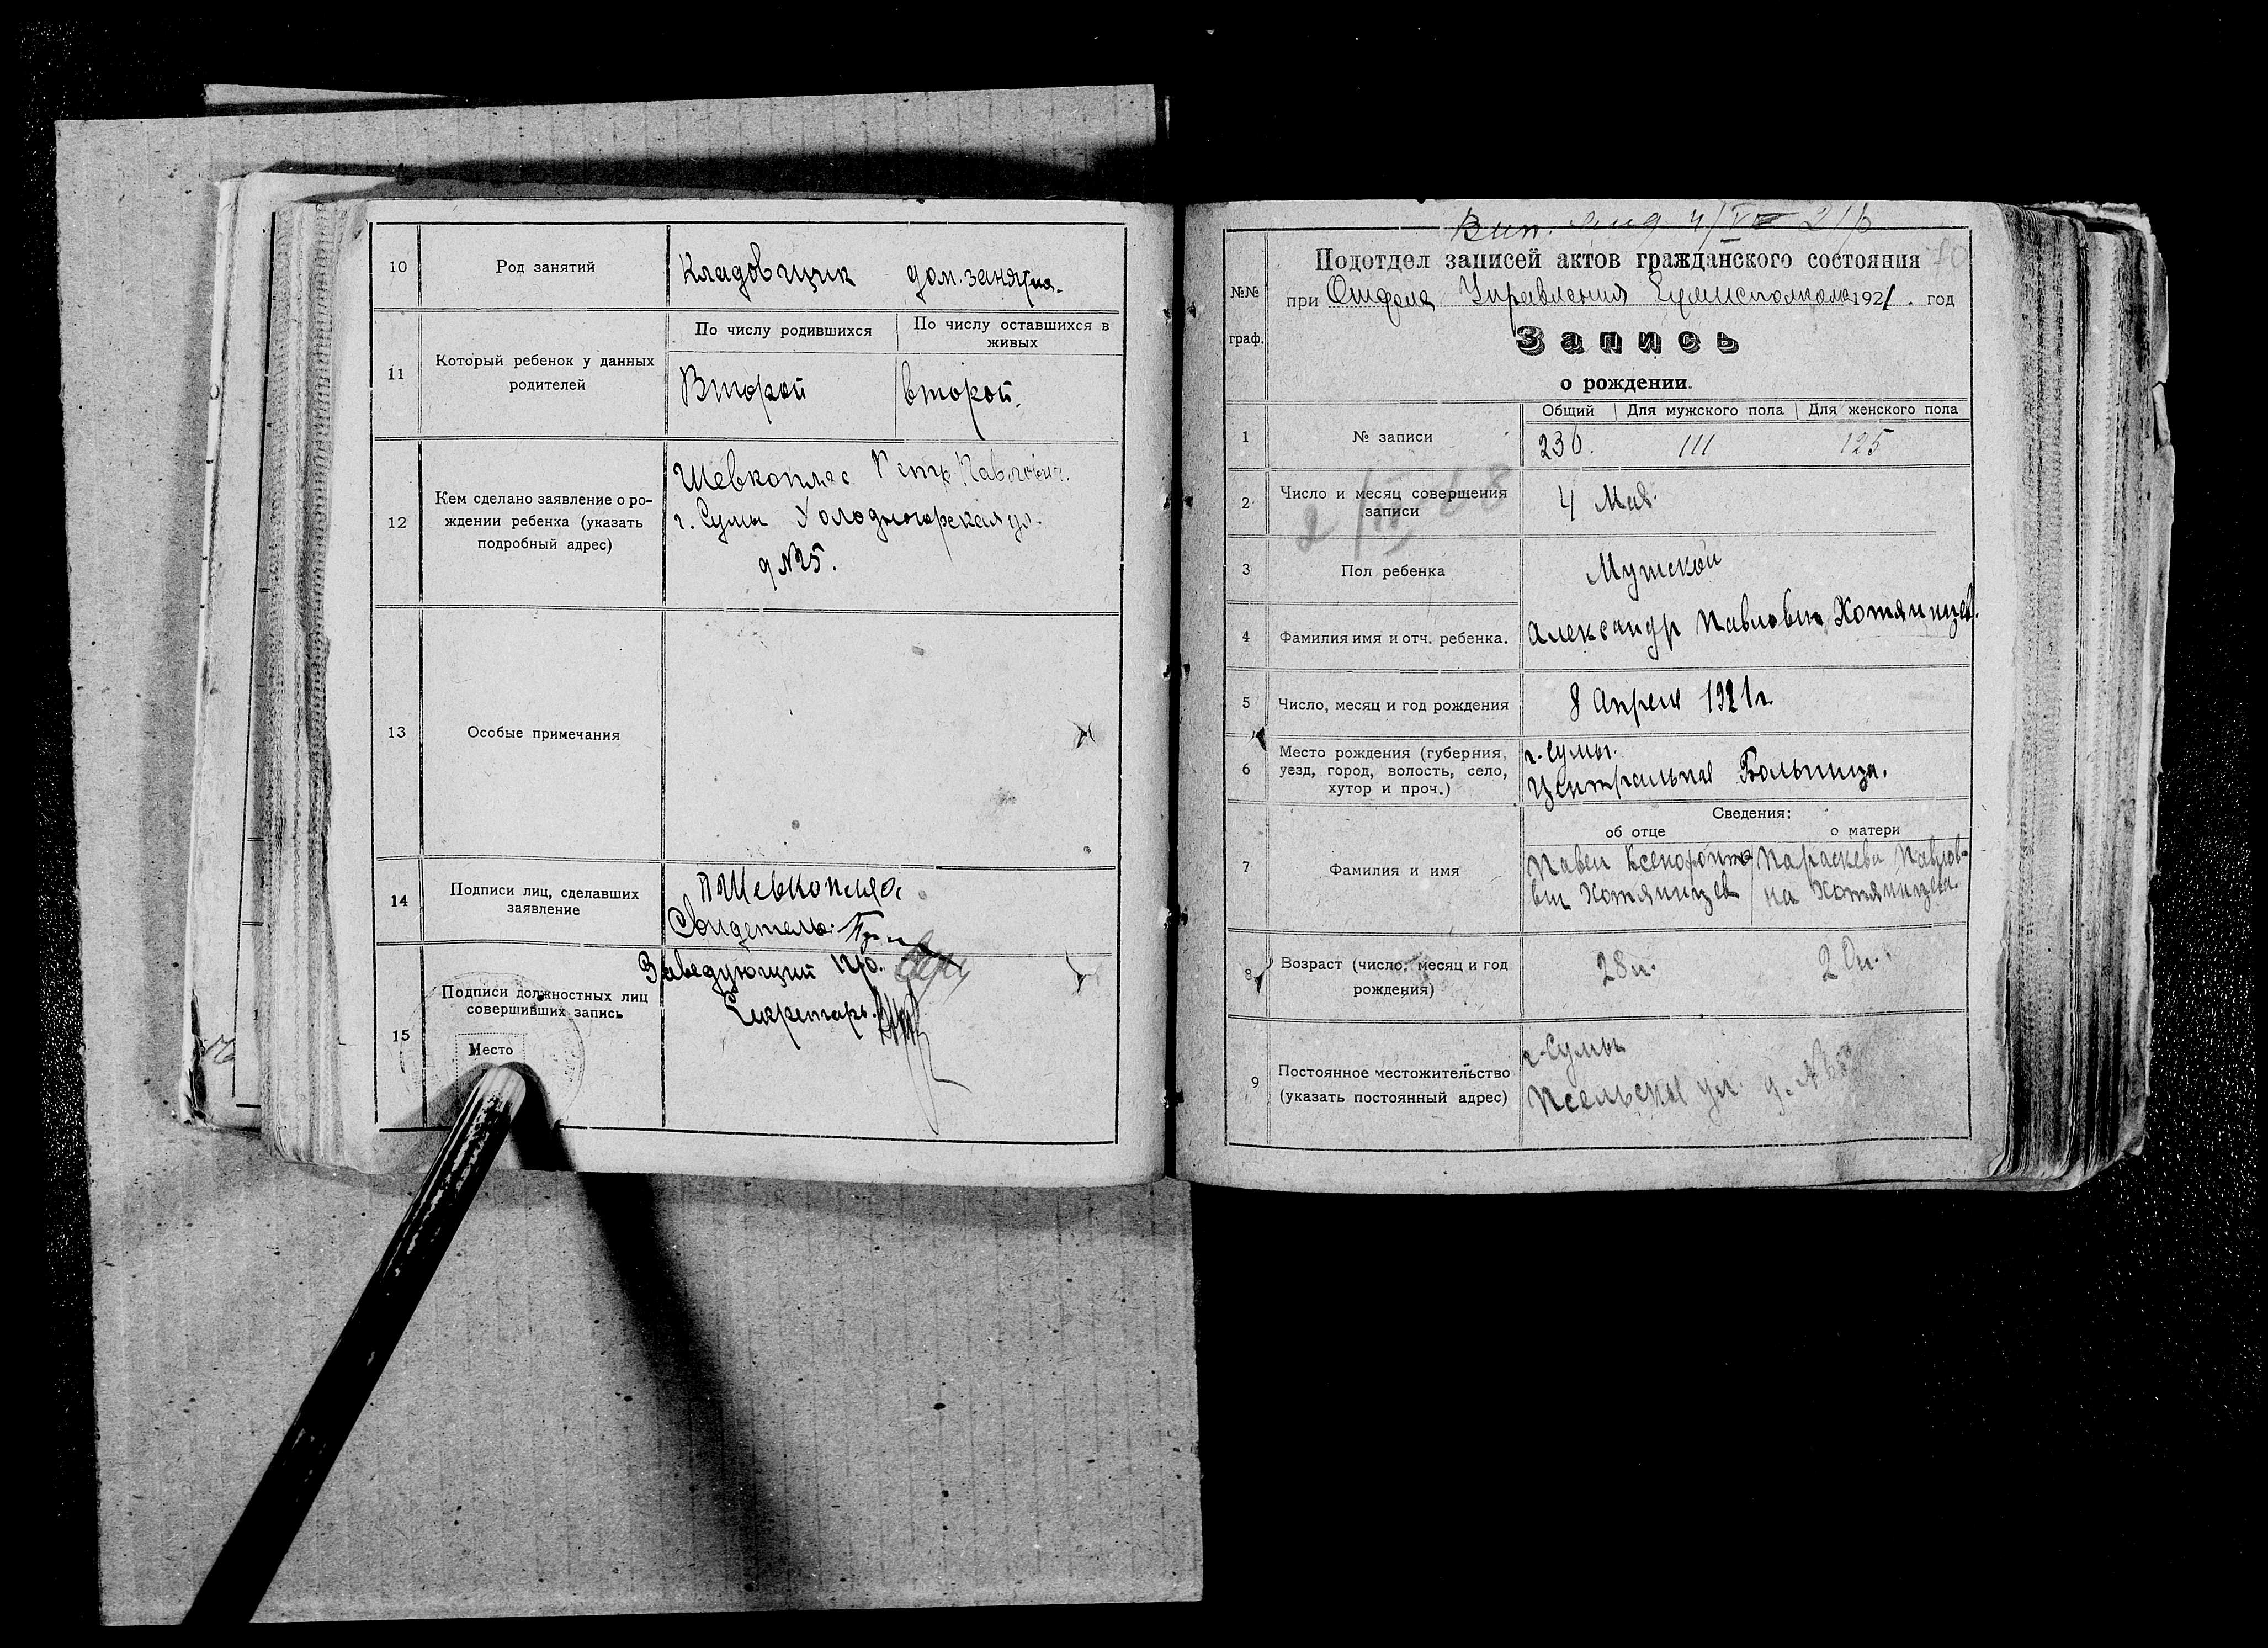 10
Род занятий
Кладовщик дом. занятия.
11
Который ребенок у данных
родителей
По числу родившихся
По числу оставшихся в
живых
Второй
второй.
12
Кем сделано заявление о ро-
ждении ребенка (указать
подробный адрес)
Шевкопляс Петр Павлович.
г. Сумы Холодногорская ул.
д №25.
13
Особые примечания
14
Подписи лиц, сделавших
заявление
ПШевкопляс
Свидетель:
15
Подписи должностных лиц
совершивших запись
Место
Заведующий
Секретарь
Вип. 4/VI 21р
70
№№
граф.
Подотдел записей актов гражданского состояния
при Отдела Управления 1921. год
Запись
о рождении.
1
№ записи
Общий
Для мужского пола
Для женского пола
236.
111
125
2
Число и месяц совершения
записи
4 Мая.
3
Пол ребенка
Мужской
4
Фамилия имя и отч. ребенка.
Александр Павлович Хотяинцев.
5
Число, месяц и год рождения
8 Апреля 1921г.
6
Место рождения (губерния,
уезд, город, волость, село,
хутор и проч.)
г. Сумы.
Центральная Больница.
7
Фамилия и имя
Сведения:
об отце
о матери
Павел Ксенофонто
вич Хотяинцев
Параскева Павлов-
на Хотяинцева.
8
Возраст (число, месяц и год
рождения)
28л.
20л.
9
Постоянное местожительство
(указать постоянный адрес)
г. Сумы
Псельская ул. д. №